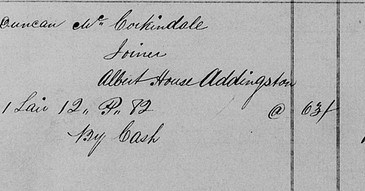 Duncan Mc Corkindale
Joiner
Albert House Addingston
1 Lair 12,, P,, 82 @ 63/
By Cash